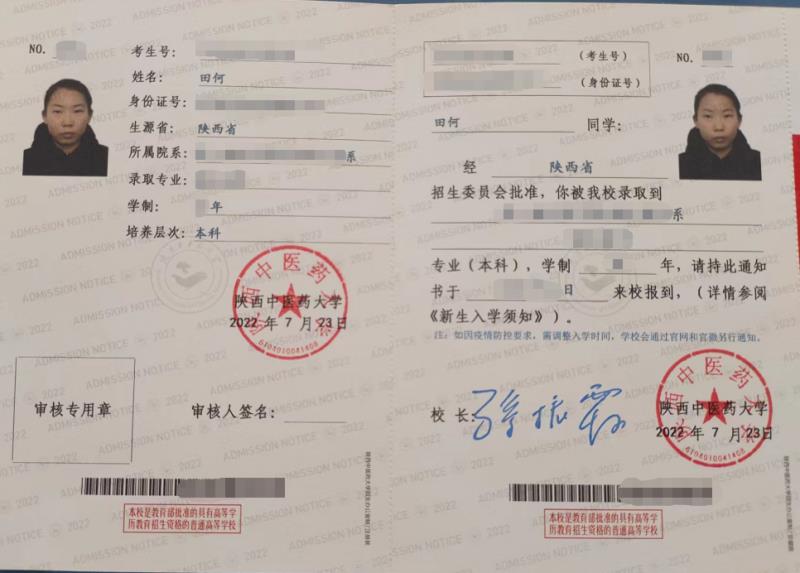 NO.
考生号:
姓名: 田何
身份证号:
生源省: 陕西省
所属院系: 系
录取专业:
学制: 年
培养层次: 本科
陕西中医药大学
陕西中医药大学
2022 年 7 月 23 日
6104010041408
审核专用章
审核人签名:
本校是教育部批准的具有高等学
历教育招生资格的普通高等学校
(考生号)
(身份证号)
NO.
田何 同学:
经 陕西省
招生委员会批准，你被我校录取到
系
专业(本科)，学制 年，请持此通知
书于 日 来校报到，(详情参阅
《新生入学须知》)。
注: 如因疫情防控要求，需调整入学时间，学校会通过官网和官微另行通知。
校 长:
陕西中医药大学
陕西中医药大学
2022 年 7 月 23 日
6104010041408
本校是教育部批准的具有高等学
历教育招生资格的普通高等学校
ADMISSION NOTICE 2022